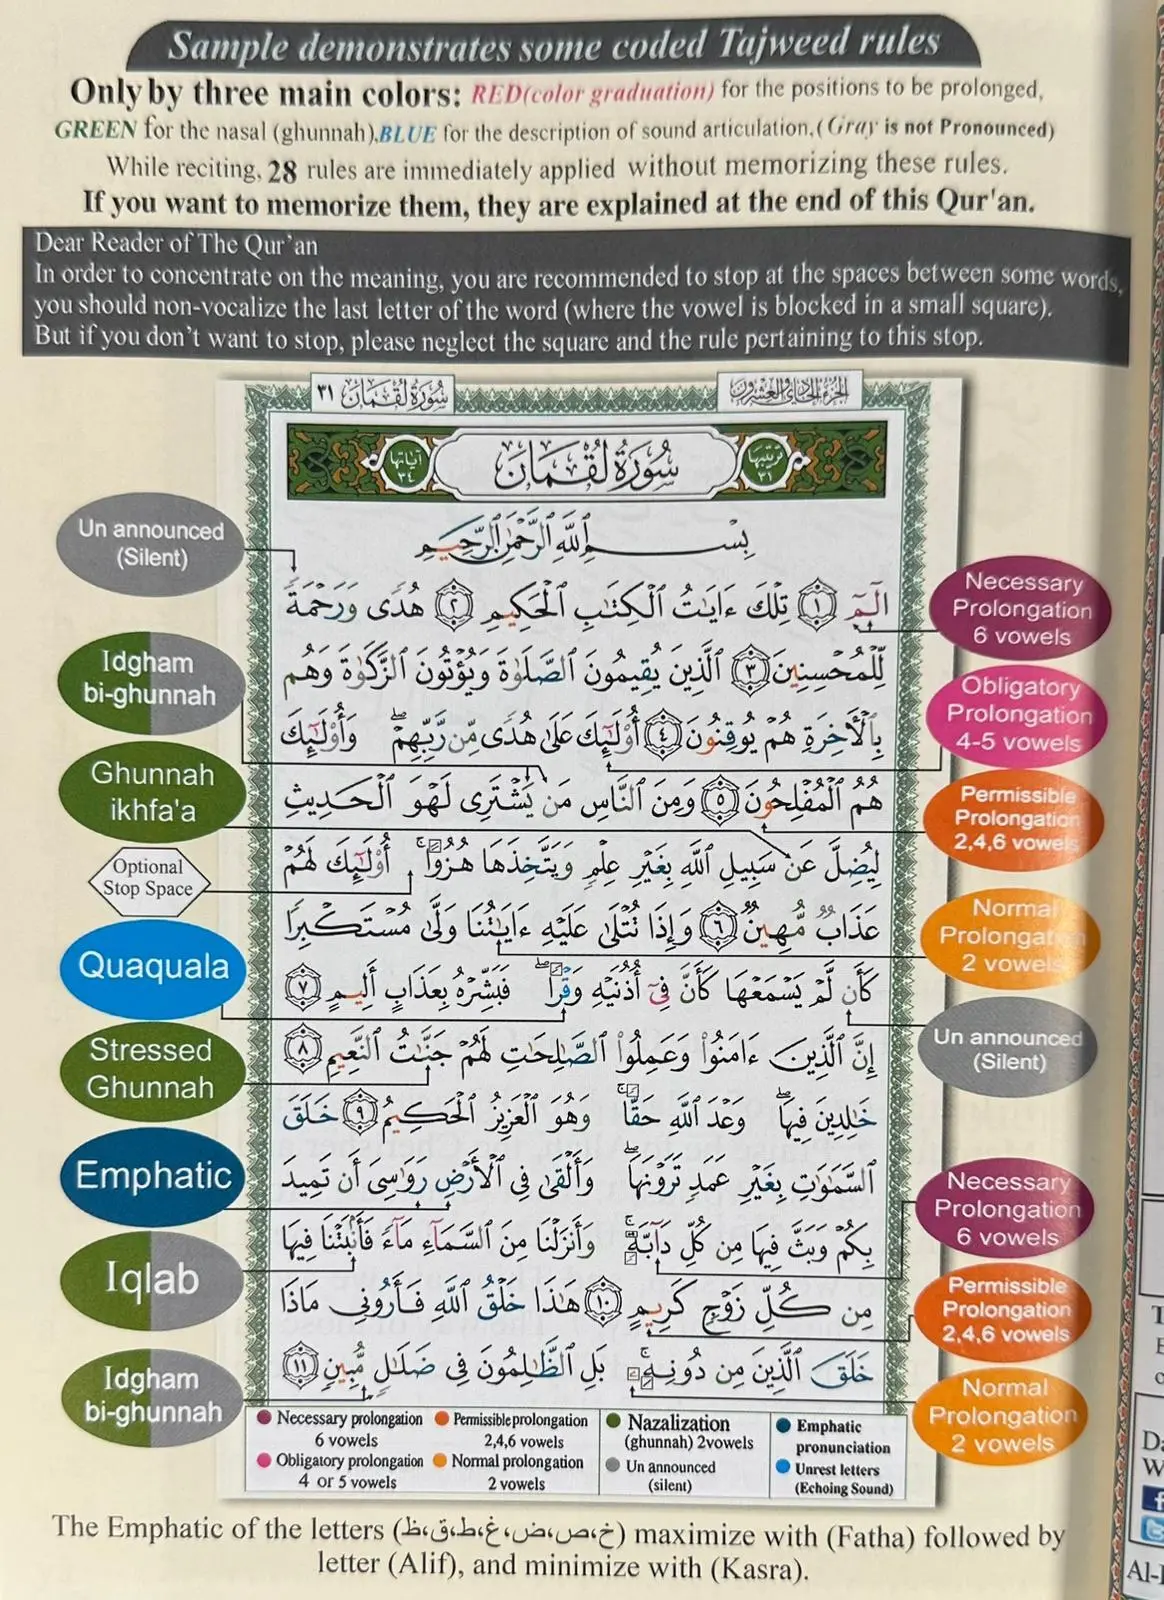 Sample demonstrates some coded Tajweed rules
Only by three main colors: RED(color graduation) for the positions to be prolonged,
GREEN for the nasal (ghunnah),BLUE for the description of sound articulation,(Gray is not Pronounced)
While reciting, 28 rules are immediately applied without memorizing these rules.
If you want to memorize them, they are explained at the end of this Qur'an.
Dear Reader of The Qur'an
In order to concentrate on the meaning, you are recommended to stop at the spaces between some words,
you should non-vocalize the last letter of the word (where the vowel is blocked in a small square).
But if you don't want to stop, please neglect the square and the rule pertaining to this stop.
سُورَةُ لُقْمَان ٣١
الجزء الحادي والعشرون
آياتها ٣٤
سُورَةُ لُقْمَان
ترتيبها ٣١
بِسْمِ ٱللَّهِ ٱلرَّحْمَٰنِ ٱلرَّحِيمِ
الٓمٓ ١ تِلْكَ ءَايَٰتُ ٱلْكِتَٰبِ ٱلْحَكِيمِ ٢ هُدًى وَرَحْمَةً
لِّلْمُحْسِنِينَ ٣ ٱلَّذِينَ يُقِيمُونَ ٱلصَّلَوٰةَ وَيُؤْتُونَ ٱلزَّكَوٰةَ وَهُم
بِٱلْأَخِرَةِ هُمْ يُوقِنُونَ ٤ أُوْلَٰٓئِكَ عَلَىٰ هُدًى مِّن رَّبِّهِمْ ۖ وَأُوْلَٰٓئِكَ
هُمُ ٱلْمُفْلِحُونَ ٥ وَمِنَ ٱلنَّاسِ مَن يَشْتَرِى لَهْوَ ٱلْحَدِيثِ
لِيُضِلَّ عَن سَبِيلِ ٱللَّهِ بِغَيْرِ عِلْمٍ وَيَتَّخِذَهَا هُزُوًا ۚ أُوْلَٰٓئِكَ لَهُمْ
عَذَابٌ مُّهِينٌ ٦ وَإِذَا تُتْلَىٰ عَلَيْهِ ءَايَٰتُنَا وَلَّىٰ مُسْتَكْبِرًا
كَأَن لَّمْ يَسْمَعْهَا كَأَنَّ فِىٓ أُذُنَيْهِ وَقْرًا ۖ فَبَشِّرْهُ بِعَذَابٍ أَلِيمٍ ٧
إِنَّ ٱلَّذِينَ ءَامَنُوا۟ وَعَمِلُوا۟ ٱلصَّٰلِحَٰتِ لَهُمْ جَنَّٰتُ ٱلنَّعِيمِ ٨
خَٰلِدِينَ فِيهَا ۖ وَعْدَ ٱللَّهِ حَقًّا ۚ وَهُوَ ٱلْعَزِيزُ ٱلْحَكِيمُ ٩ خَلَقَ
ٱلسَّمَٰوَٰتِ بِغَيْرِ عَمَدٍ تَرَوْنَهَا ۖ وَأَلْقَىٰ فِى ٱلْأَرْضِ رَوَٰسِىَ أَن تَمِيدَ
بِكُمْ وَبَثَّ فِيهَا مِن كُلِّ دَآبَّةٍ ۚ وَأَنزَلْنَا مِنَ ٱلسَّمَآءِ مَآءً فَأَنۢبَتْنَا فِيهَا
مِن كُلِّ زَوْجٍ كَرِيمٍ ١٠ هَٰذَا خَلْقُ ٱللَّهِ فَأَرُونِى مَاذَا
خَلَقَ ٱلَّذِينَ مِن دُونِهِ ۚ بَلِ ٱلظَّٰلِمُونَ فِى ضَلَٰلٍ مُّبِينٍ ١١
Un announced
(Silent)
Idgham
bi-ghunnah
Ghunnah
ikhfa'a
Optional
Stop Space
Quaquala
Stressed
Ghunnah
Emphatic
Iqlab
Idgham
bi-ghunnah
Necessary
Prolongation
6 vowels
Obligatory
Prolongation
4-5 vowels
Permissible
Prolongation
2,4,6 vowels
Normal
Prolongation
2 vowels
Un announced
(Silent)
Necessary
Prolongation
6 vowels
Permissible
Prolongation
2,4,6 vowels
Normal
Prolongation
2 vowels
Necessary prolongation
6 vowels
Obligatory prolongation
4 or 5 vowels
Permissible prolongation
2,4,6 vowels
Normal prolongation
2 vowels
Nazalization
(ghunnah) 2vowels
Un announced
(silent)
Emphatic
pronunciation
Unrest letters
(Echoing Sound)
The Emphatic of the letters (خ،ص،ض،غ،ط،ق،ظ) maximize with (Fatha) followed by
letter (Alif), and minimize with (Kasra).